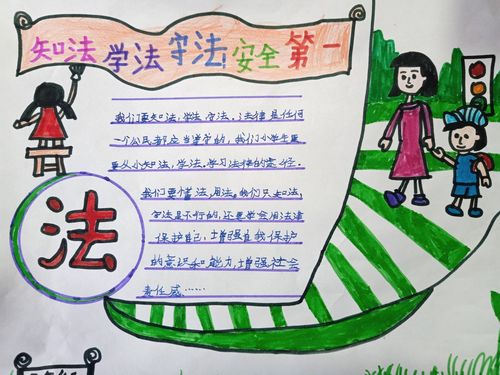 知法学法守法安全第一
我们要知法,学法,守法,法律是任何
一个公民都应当遵守的,我们小学生更
要从小知法,学法,学习法律的途径。
我们要懂法,用法。我们只知法,
守法是不行的,还要学会用法律
保护自己,增强自我保护
的意识和能力,增强社会
责任感……
法